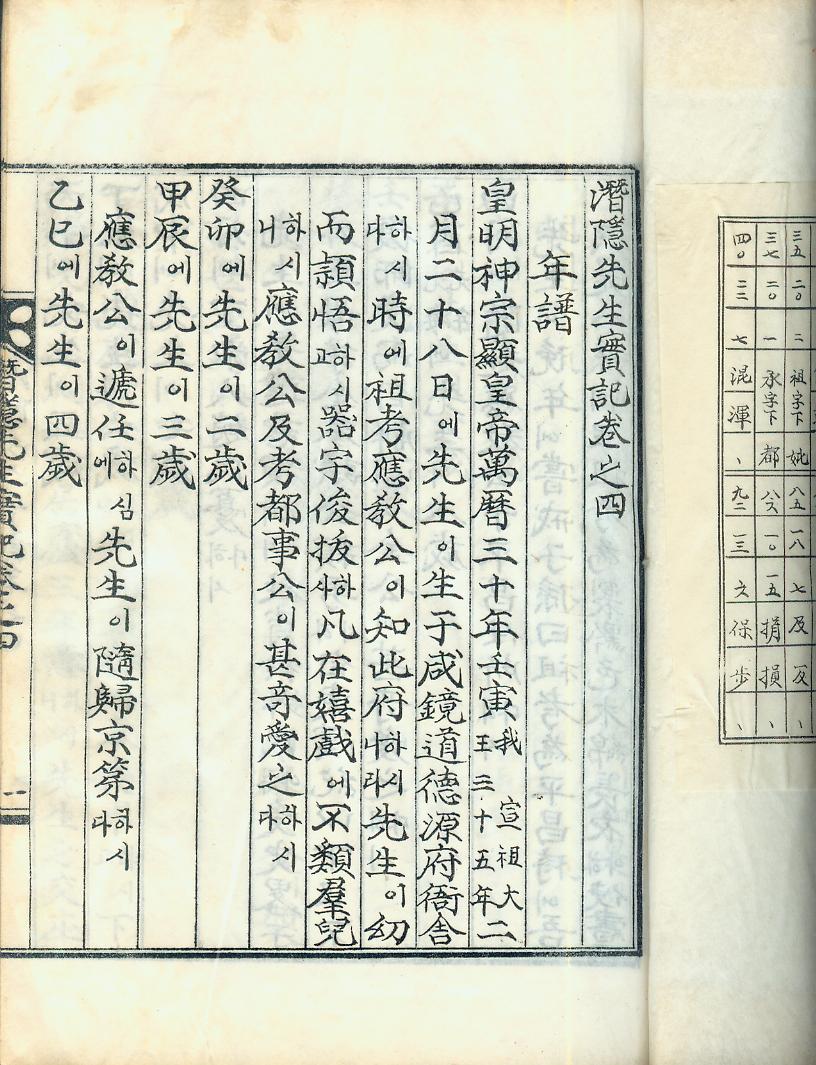 三五 二〇 二 祖字下 妣 八五 一八 七 及 反 、
三七 二〇 一 承字下 都 八六 一〇 一五 捐 損 、
四〇 二三 七 混 渾 、 九二 一三 六 保 步 、
潛隱先生實記卷之四
年譜
皇明神宗顯皇帝萬曆三十年壬寅我 宣祖大王三十五年二
月二十八日에先生이生于咸鏡道德源府衙舍
하시다時에祖考應敎公이知此府하시니라先生이幼
而頴悟하시고器宇俊拔하사凡在嬉戱에不類羣兒
하시니應敎公及考都事公이甚奇愛之하시다
癸卯에先生이二歲
甲辰에先生이三歲
應敎公이遞任하심에先生이隨歸京第하시다
乙巳에先生이四歲
潛隱先生實記卷之四 一